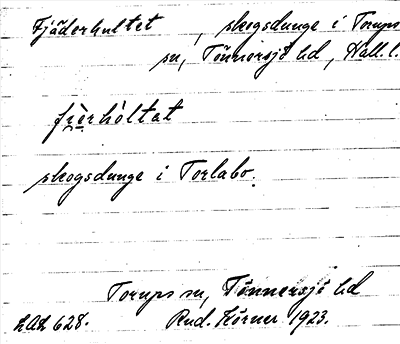 Fjäderhultet, skogsdunge i Torups
sn, Tönnersjö hd, Hall. l.
fjèrhòltat
skogsdunge i Torlabo.
Torups sn, Tönnersjö hd
LAL 628. Rud. Körner 1923.